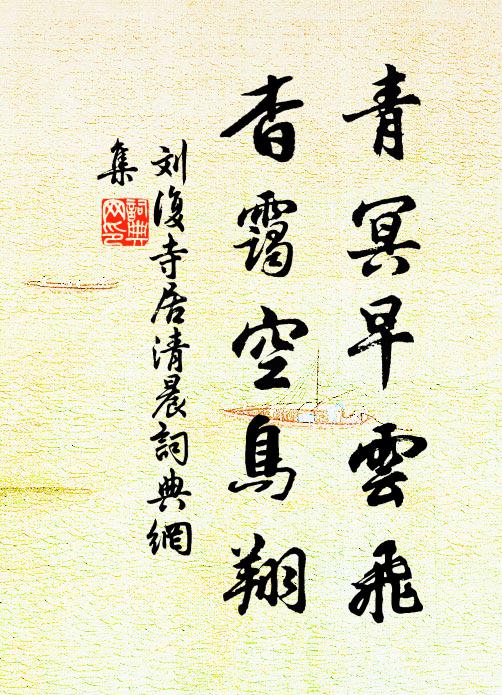 青冥早雲飛
杳靄空鳥翔
刘復寺居清晨詞典網
集
詞典网印